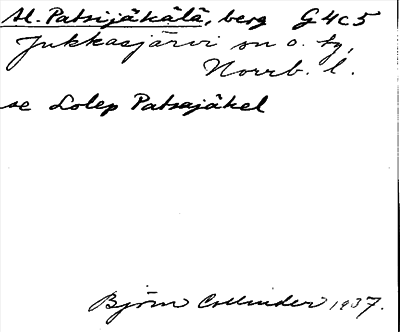 st. Patsijäkälä, berg G4c5
Jukkasjärvi sn o. tg,
Norrb. l.
se Lolep Patsajäkel
Björn Collinder 1937.